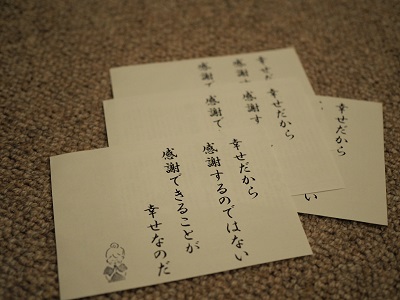 幸せだから
感謝するのではない
感謝できることが
幸せなのだ
幸せだから
感謝す
感謝で
幸せだ
感謝す
感謝で
幸せだから
い